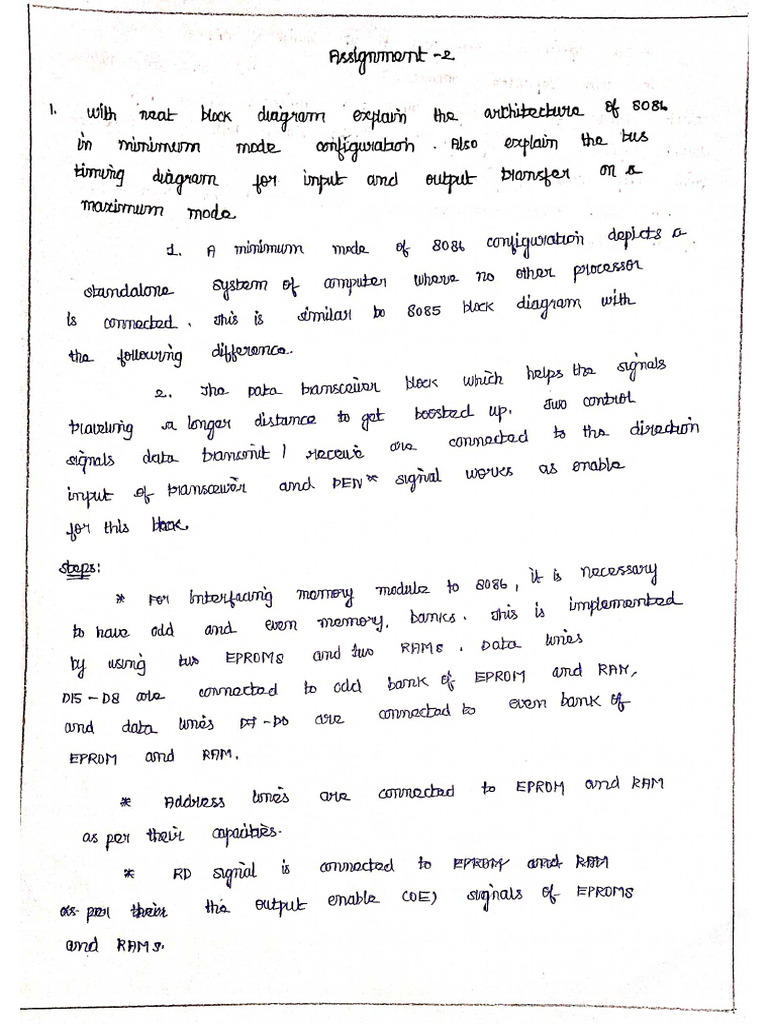 Assignment -2
1. with neat block diagram explain the architecture of 8086
in minimum mode configuration. Also explain the bus
timing diagram for input and output transfer on a
maximum mode
1. A minimum mode of 8086 configuration depicts a
standalone system of computer where no other processor
is connected. This is similar to 8085 block diagram with
the following difference.
2. The Data transceiver block which helps the signals
traveling a longer distance to get boosted up. Two control
signals data transmit / receive are connected to the direction
input of transceiver and DEN* signal works as enable
for this block.
steps:
* For interfacing memory module to 8086, it is necessary
to have odd and even memory. banks. This is implemented
by using two EPROMS and two RAMS. Data lines
D15-D8 are connected to odd bank of EPROM and RAM,
and data lines D7-D0 are connected to even bank of
EPROM and RAM.
* Address lines are connected to EPROM and RAM
as per their capacities.
* RD signal is connected to EPROM and RAM
as per their the output enable (OE) signals of EPROMS
and RAMS.